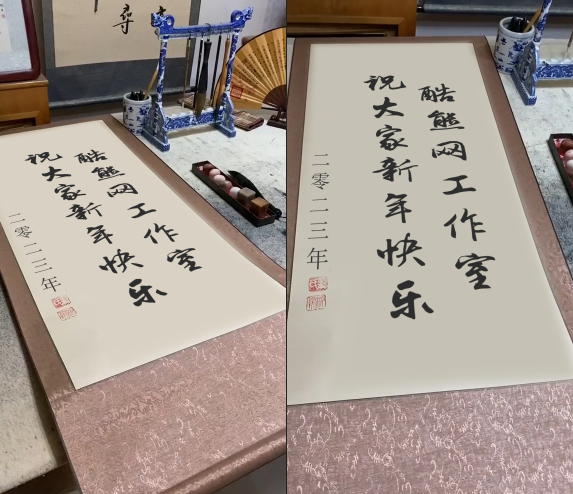 酷熊网工作室
祝大家新年快乐
二零二三年
酷熊网工作室
祝大家新年快乐
二零二三年